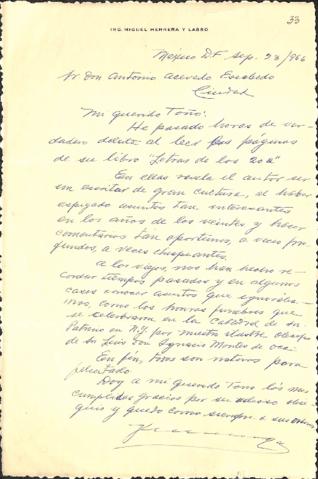 33
ING. MIGUEL HERRERA Y LASSO
México D.F. sep. 23/966
Sr Don Antonio Acevedo Escobedo
Ciudad
Mi querido Toño:
He pasado horas de ver-
dadero deleite al leer las páginas
de su libro "Letras de los 20a"
En ellas revela el autor ser
un escritor de gran cultura, al haber
espigado asuntos tan interesantes
en los años de los veintes y hacer
comentarios tan oportunos, a veces pro-
fundos, a veces chispeantes.
A los viejos, nos han hecho re-
cordar tiempos pasados y en algunos
casos conocer asuntos que ignorába-
mos, como los honras fúnebres que
se celebraron en la Catedral de San
Patricio en N.Y. por nuestro ilustre Obispo
de San Luis don Ignacio Montes de Oca.
En fin, son motivos para
felicitarlo
Doy a mi querido Toño las más
cumplidas gracias por su valioso obse-
quio y quedo como siempre a sus órdenes